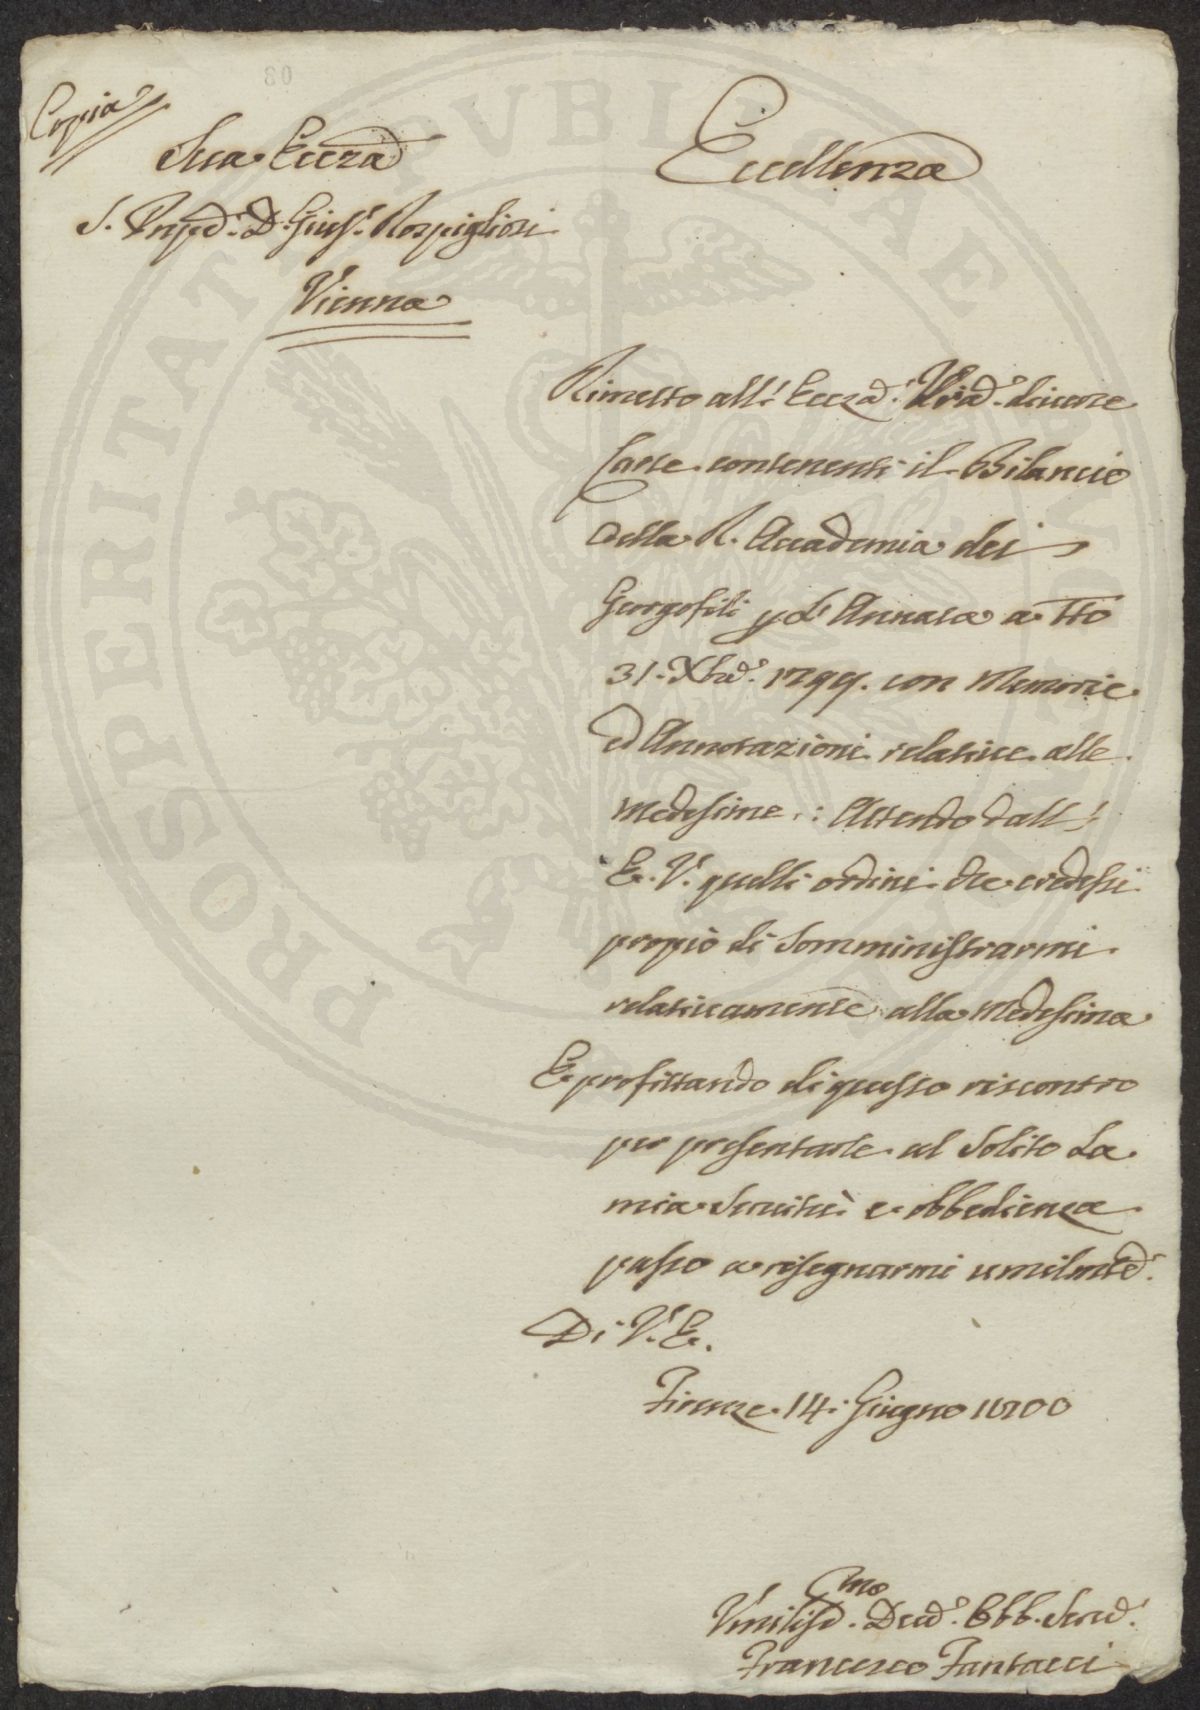 80
Copia
Sua Eccza
S. Pnpe D. Giuse. Rospigliosi
Vienna
Eccellenza
Rimetto all' Eccza. Vra. diverse
Carte contenenti il Bilancio
della R. Accademia dei
Georgofili p l' Annata a tto
31. Xbre. 1799. con Memorie
ed Annotazioni relative alle
medesime: Attendo dall'
E. V. quelli ordini che credessi
propio di Somministrarmi
relativamente alla medesima
E profittando di questo riscontro
per presentarle al Solito La
mia Servitù e obbedienza
passo a risegnarmi umilmte.
Di V. E.
Firenze 14. Giugno 1800
Umilis. Dev. Obb. Serv.
mo
Francesco Fantacci
PROSPERITATI PVBLICAE